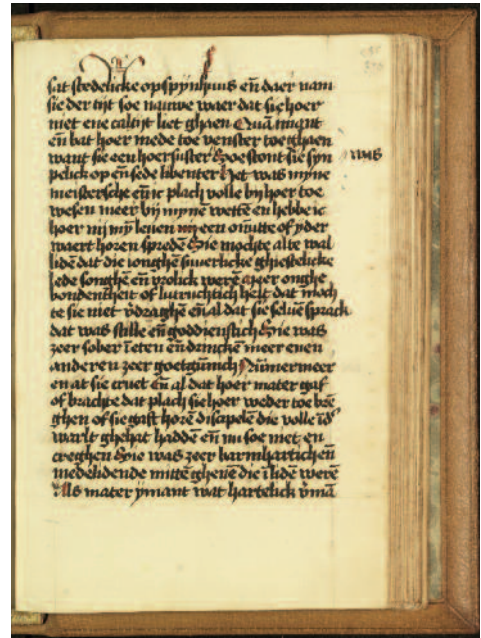 sat stedelicke op spynhuus en̄ daer nam
sie der tijt soe nauwe waer dat sie hoer
niet ene caltijt liet ghaen Quā nimant
en̄ bat hoer mede toe venster toe ghaen
want sie een hoer suster Soe stont sie syn was
pelick op en̄ sede libenter Het was myne
meistersche en̄ ic plach volle by hoer toe
wesen meer bij mynē wettē en hebbe ic
hoer nij mȳ leuen een onutte of yder
waert horen sprekē Sie mochte alte wal
lidē dat die ionghē suuerlicke ghiestelicke
lede songhē en̄ vrolick werē Meer onghe
bondentheit of luttruchtich heit dat moch
te sie niet v̄draghē en̄ al dat sie seluē sprack
dat was stille en̄ goddienstich Sie was
zeer sober ī eten en̄ drincken meer euen
anderen zeer goetgunnich Nūmermeer
en at sie cruet en̄ al dat hoer mater gaf
of brachte dat plach sie hoer weder toe brē
ghen of sie gaft horē discipelē die volle ī d'
warlt ghehat hadden en̄ nu soe niet en
creghen Sie was zeer barmhartich en̄
medelidende mittē ghenē die ī lidē werē
Als mater ymant wat hartelick v̄mā